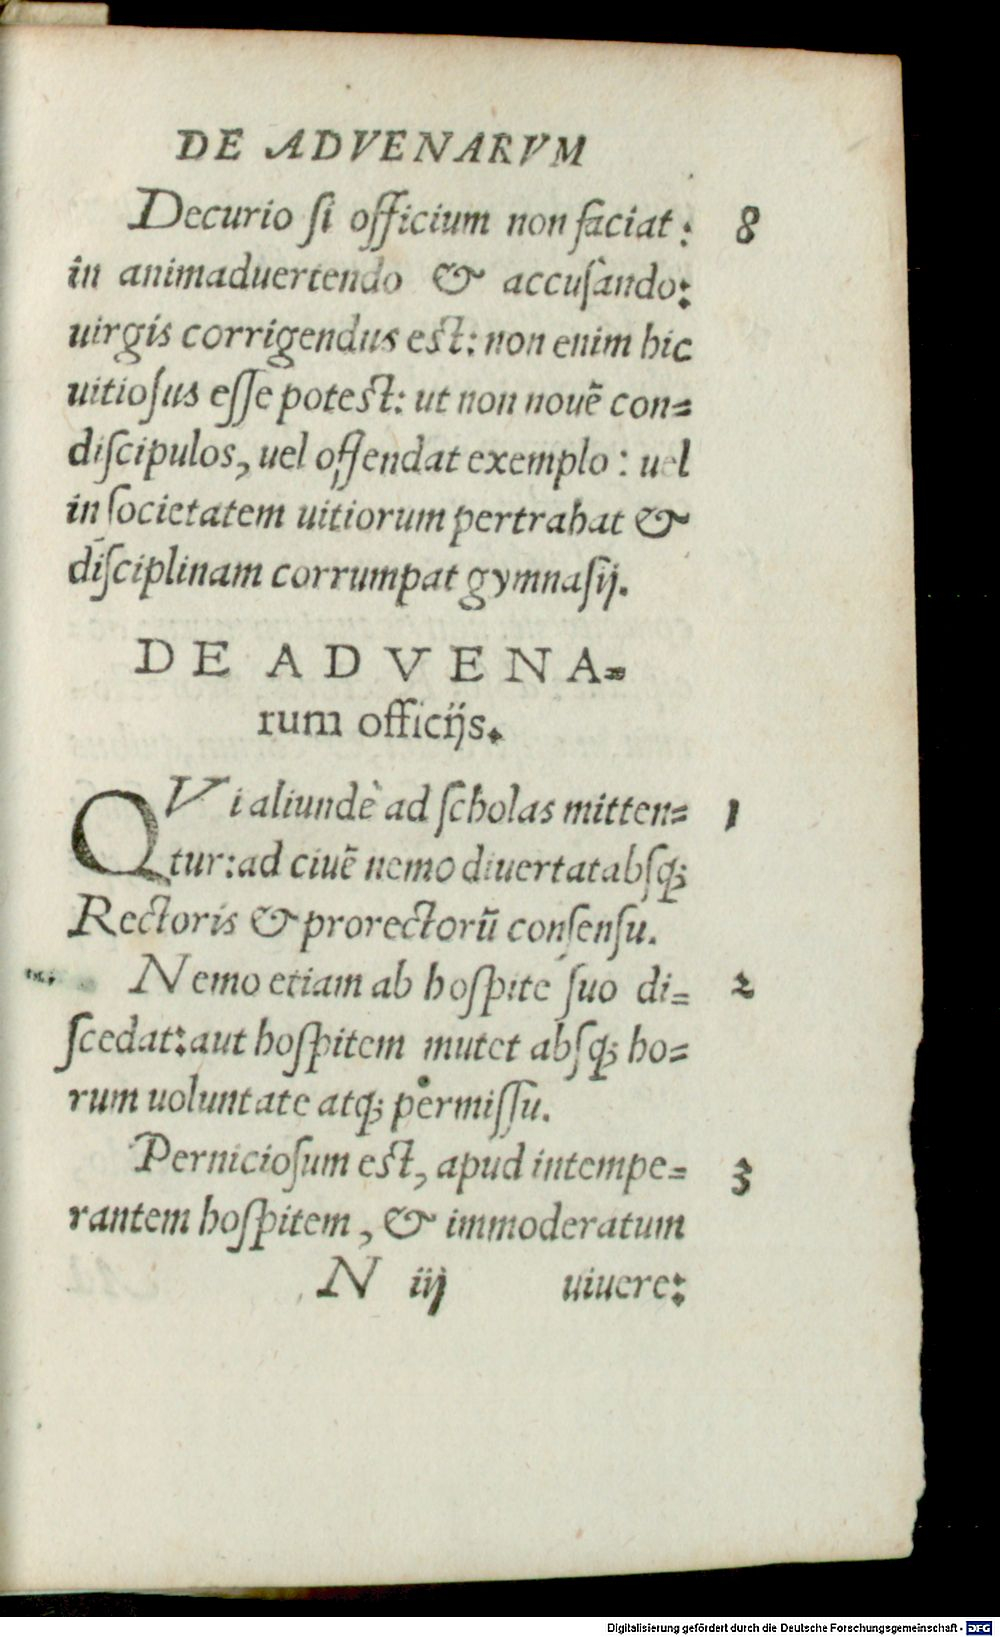 DE ADVENARVM
Decurio ſi officium non faciat: 8
in animaduertendo & accuſando:
uirgis corrigendus est: non enim hic
uitioſus eſſe potest: ut non nouē con=
diſcipulos, uel offendat exemplo: uel
in ſocietatem uitiorum pertrahat &
diſciplinam corrumpat gymnaſij.
DE ADVENA=
rum officijs.
QVi aliundè ad ſcholas mitten= 1
tur: ad ciuē nemo diuertat abſq;
Rectoris & prorectorū conſenſu.
Nemo etiam ab hoſpite ſuo di= 2
ſcedat: aut hoſpitem mutet abſq; ho=
rum uoluntate atq; permiſſu.
Pernicioſum est, apud intempe= 3
rantem hoſpitem, & immoderatum
N iij uiuere:
Digitalisierung gefördert durch die Deutsche Forschungsgemeinschaft - DFG